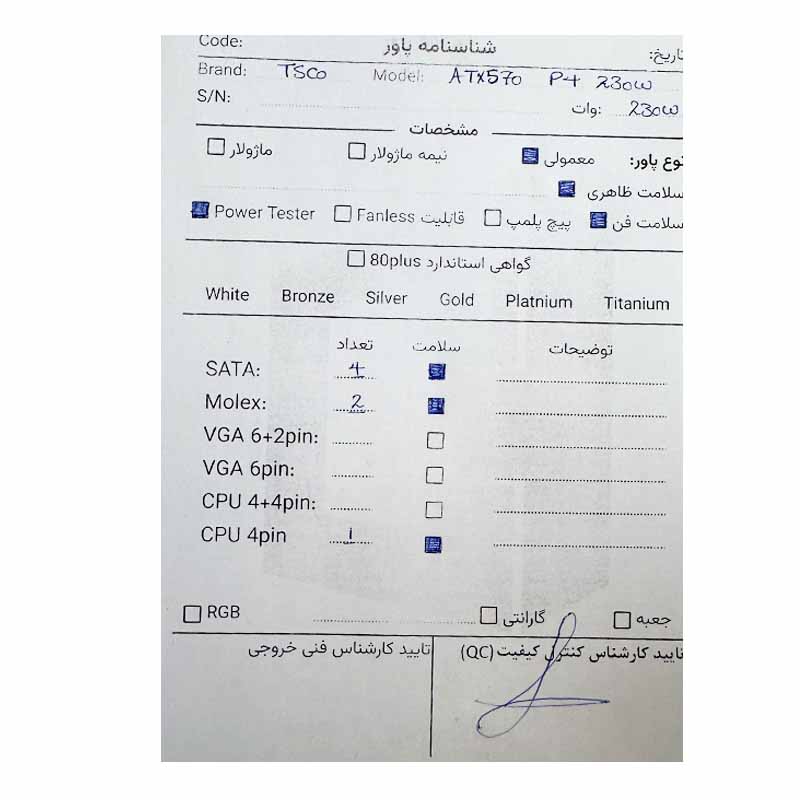 Code: شناسنامه پاور تاریخ:
Brand: TSCO Model: ATX570 P4 230W
S/N: وات: 230W
مشخصات
نوع پاور: معمولی نیمه ماژولار ماژولار
سلامت ظاهری
سلامت فن پیچ پلمپ قابلیت Fanless Power Tester
گواهی استاندارد 80plus
White Bronze Silver Gold Platnium Titanium
تعداد سلامت توضیحات
SATA: 4
Molex: 2
VGA 6+2pin:
VGA 6pin:
CPU 4+4pin:
CPU 4pin 1
جعبه گارانتی RGB
تایید کارشناس کنترل کیفیت (QC) تایید کارشناس فنی خروجی